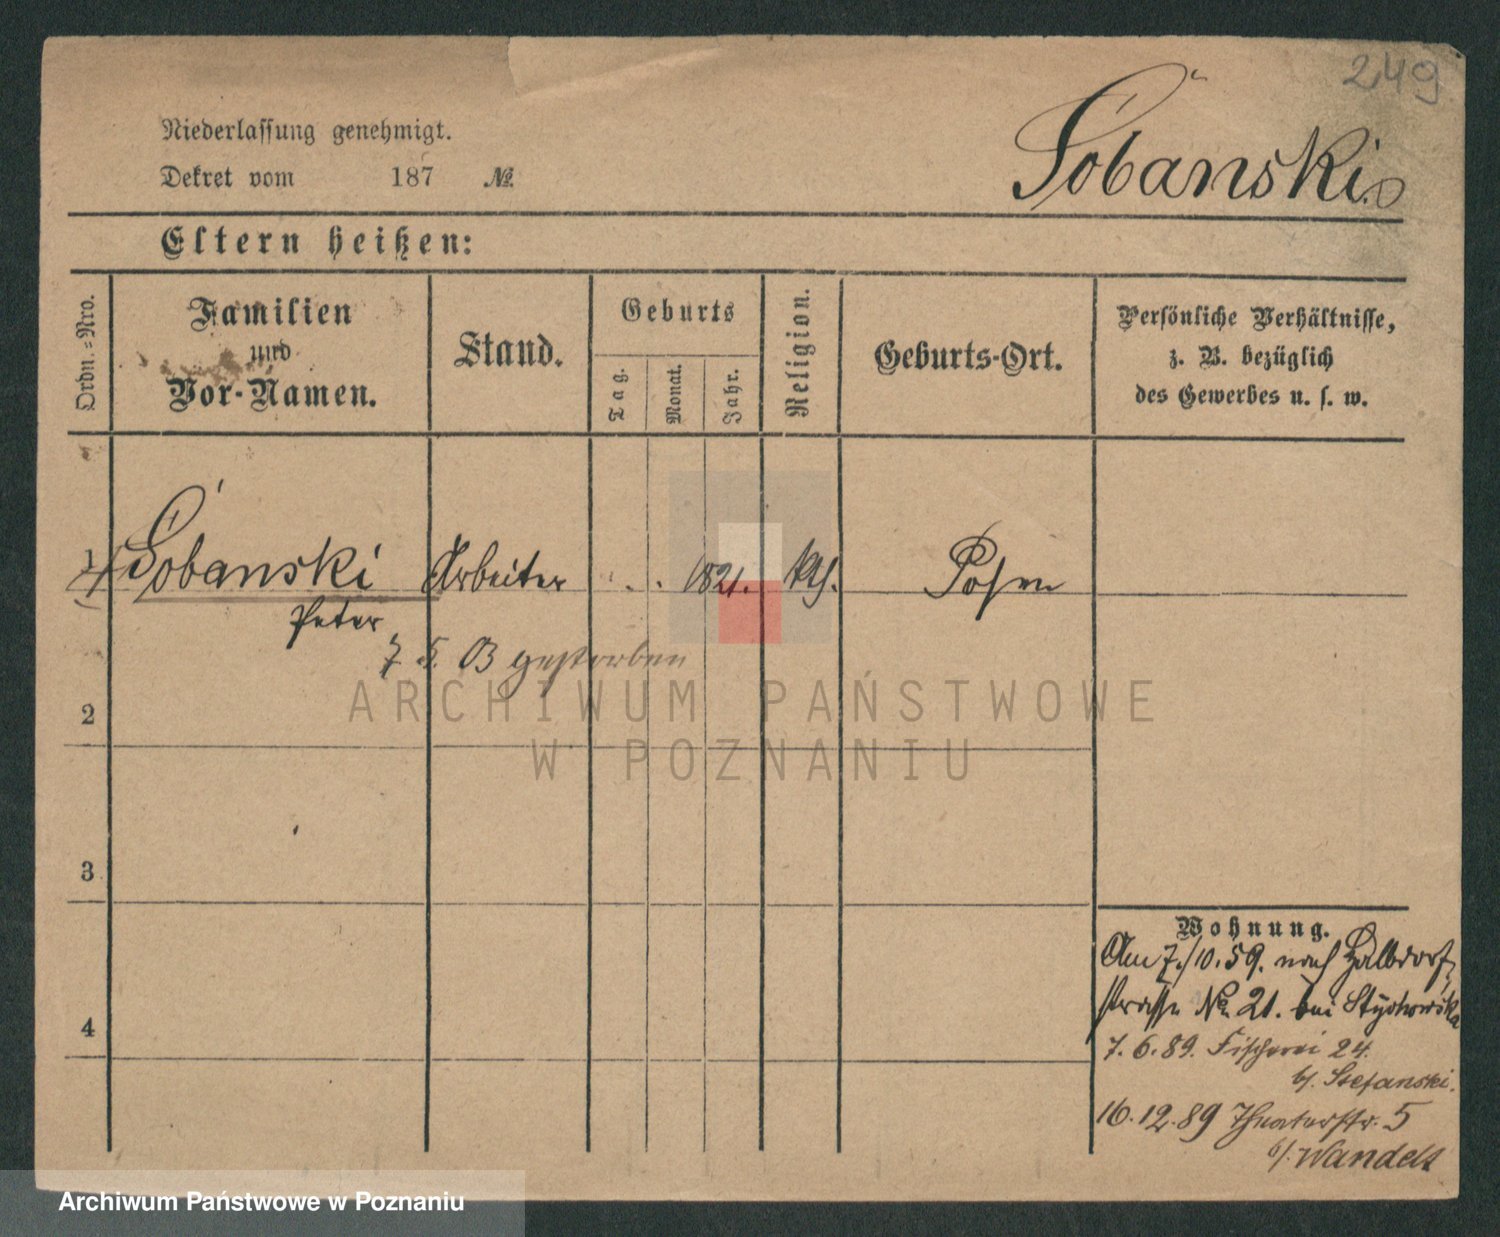 249
Niederlassung genehmigt.
Dekret vom 187 №
Sobanski
Eltern heißen:
Ordn.=Nro.
Familien
und
Vor-Namen.
Stand.
Geburts
Tag.
Monat.
Jahr.
Religion.
Geburts-Ort.
Persönliche Verhältnisse,
z. B. bezüglich
des Gewerbes u. s. w.
1 Sobanski Arbeiter . . 1821. kth. Posen
Peter
gestorben
2
ARCHIWUM PAŃSTWOWE
W POZNANIU
3
4
Wohnung.
Am 7./10. 59. nach Halbdorf
strasse No 21. bei
7. 6. 89. Fischerei 24.
b/. Stefanski.
16. 12. 89 Theaterstr. 5
b/. Wandelt
Archiwum Państwowe w Poznaniu